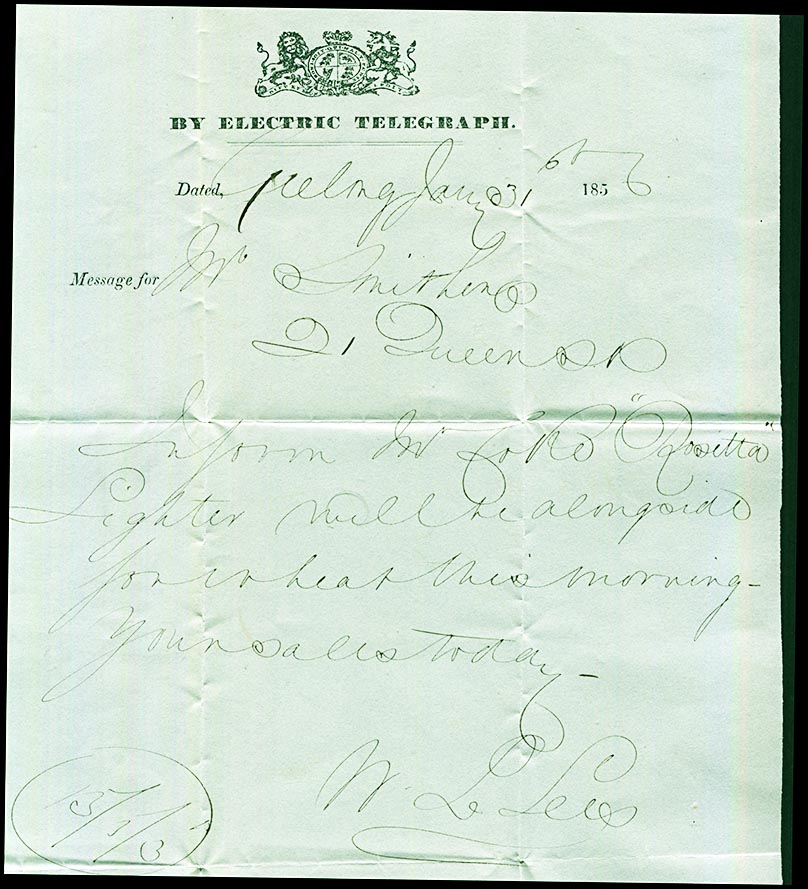 BY ELECTRIC TELEGRAPH.
Dated, Geelong Jany 31st 1856
Message for Mr Smithers
21 Queen St
Inform Mr Coke "Rosetta"
Lighter will be alongside
for wheat this morning -
Your sales today -
W. L Lees